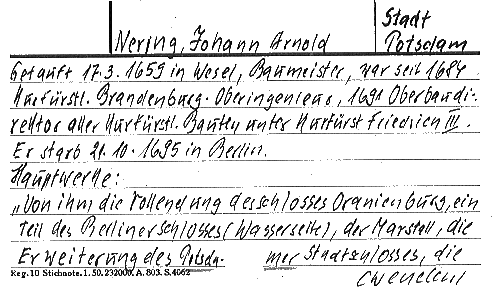 Nering, Johann Arnold
Stadt
Potsdam
Getauft 17.3.1659 in Wesel, Baumeister, war seit 1684
Kurfürstl. Brandenburg. Oberingenieur, 1691 Oberbaudi-
rektor aller Kurfürstl. Bauten unter Kurfürst Friedrich III.
Er starb 21.10.1695 in Berlin.
Hauptwerke:
„Von ihm die Vollendung des Schlosses Oranienburg, ein
Teil des Berliner Schlosses (Wasserseite), der Marstall, die
Erweiterung des Potsda- mer Stadtschlosses, die
Reg. 10 Stichnote. 1. 50. 232000. A. 803. S. 4062